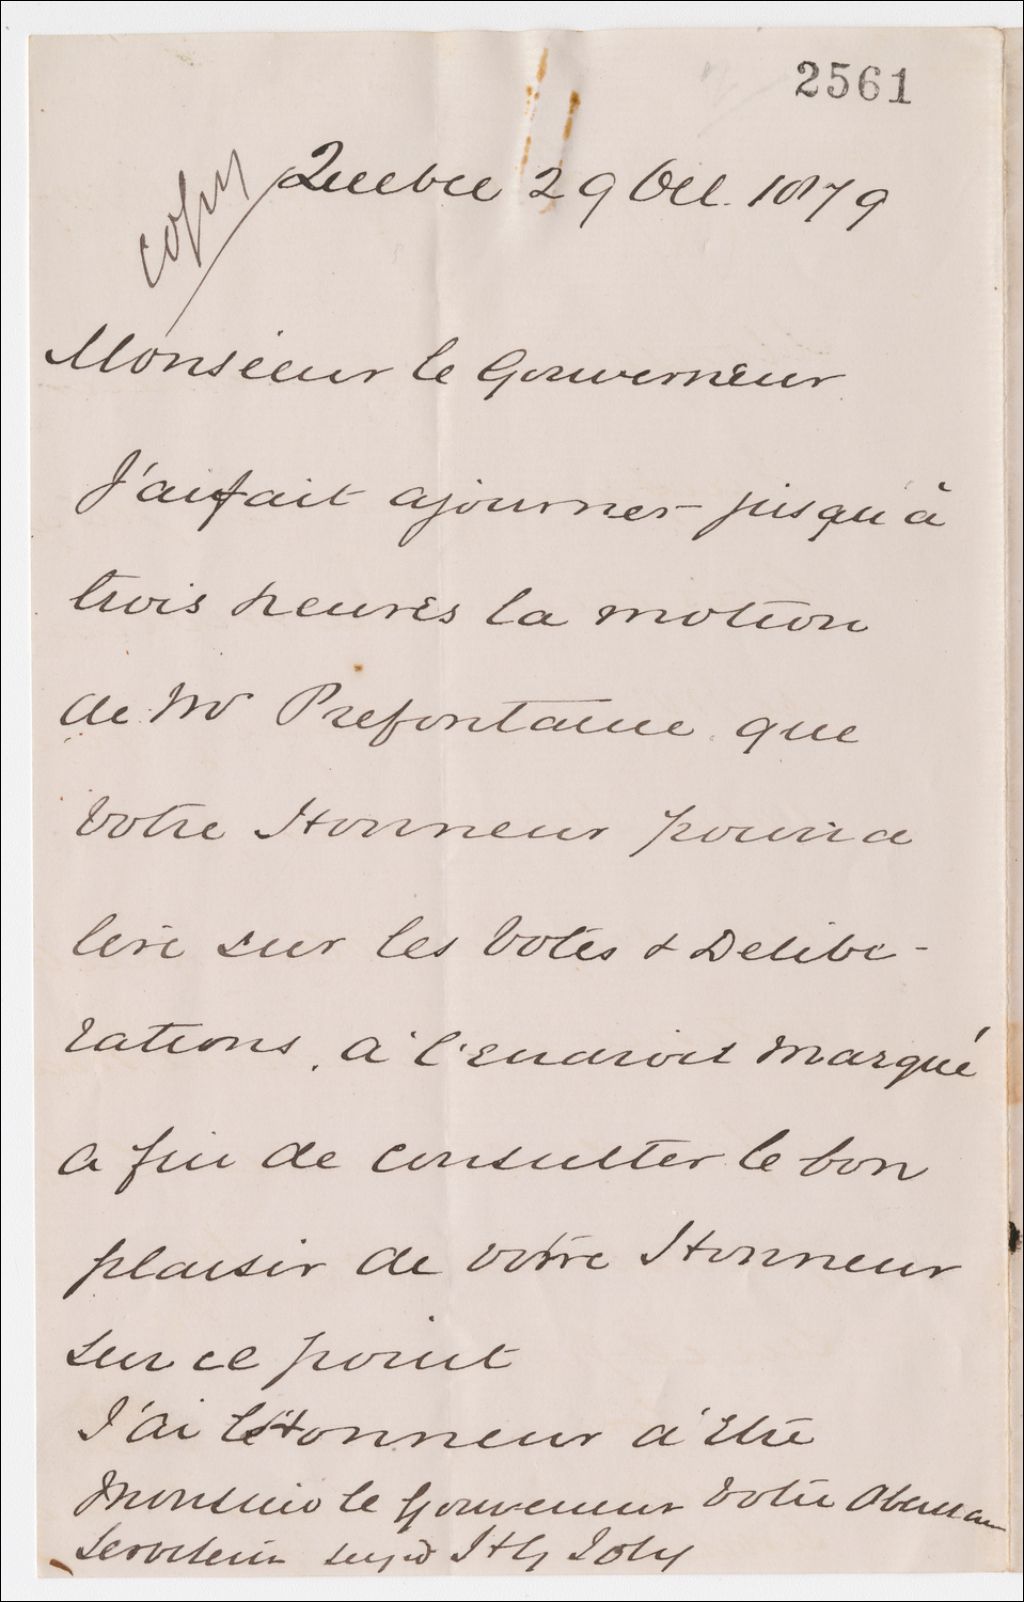 2561
copy
Quebec 29 Oct. 1879
Monsieur le Gouverneur
J'ai fait ajourner jusqu'à
trois heures la motion
de Mr Prefontaine que
Votre Honneur pourra
lire sur les Votes & Delibe-
rations, à l'endroit marqué
a fin de consulter le bon
plaisir de votre Honneur
sur ce point
J'ai l'Honneur d'être
Monsieur le Gouverneur Votre Obeissan
Serviteur sigd H G Joly